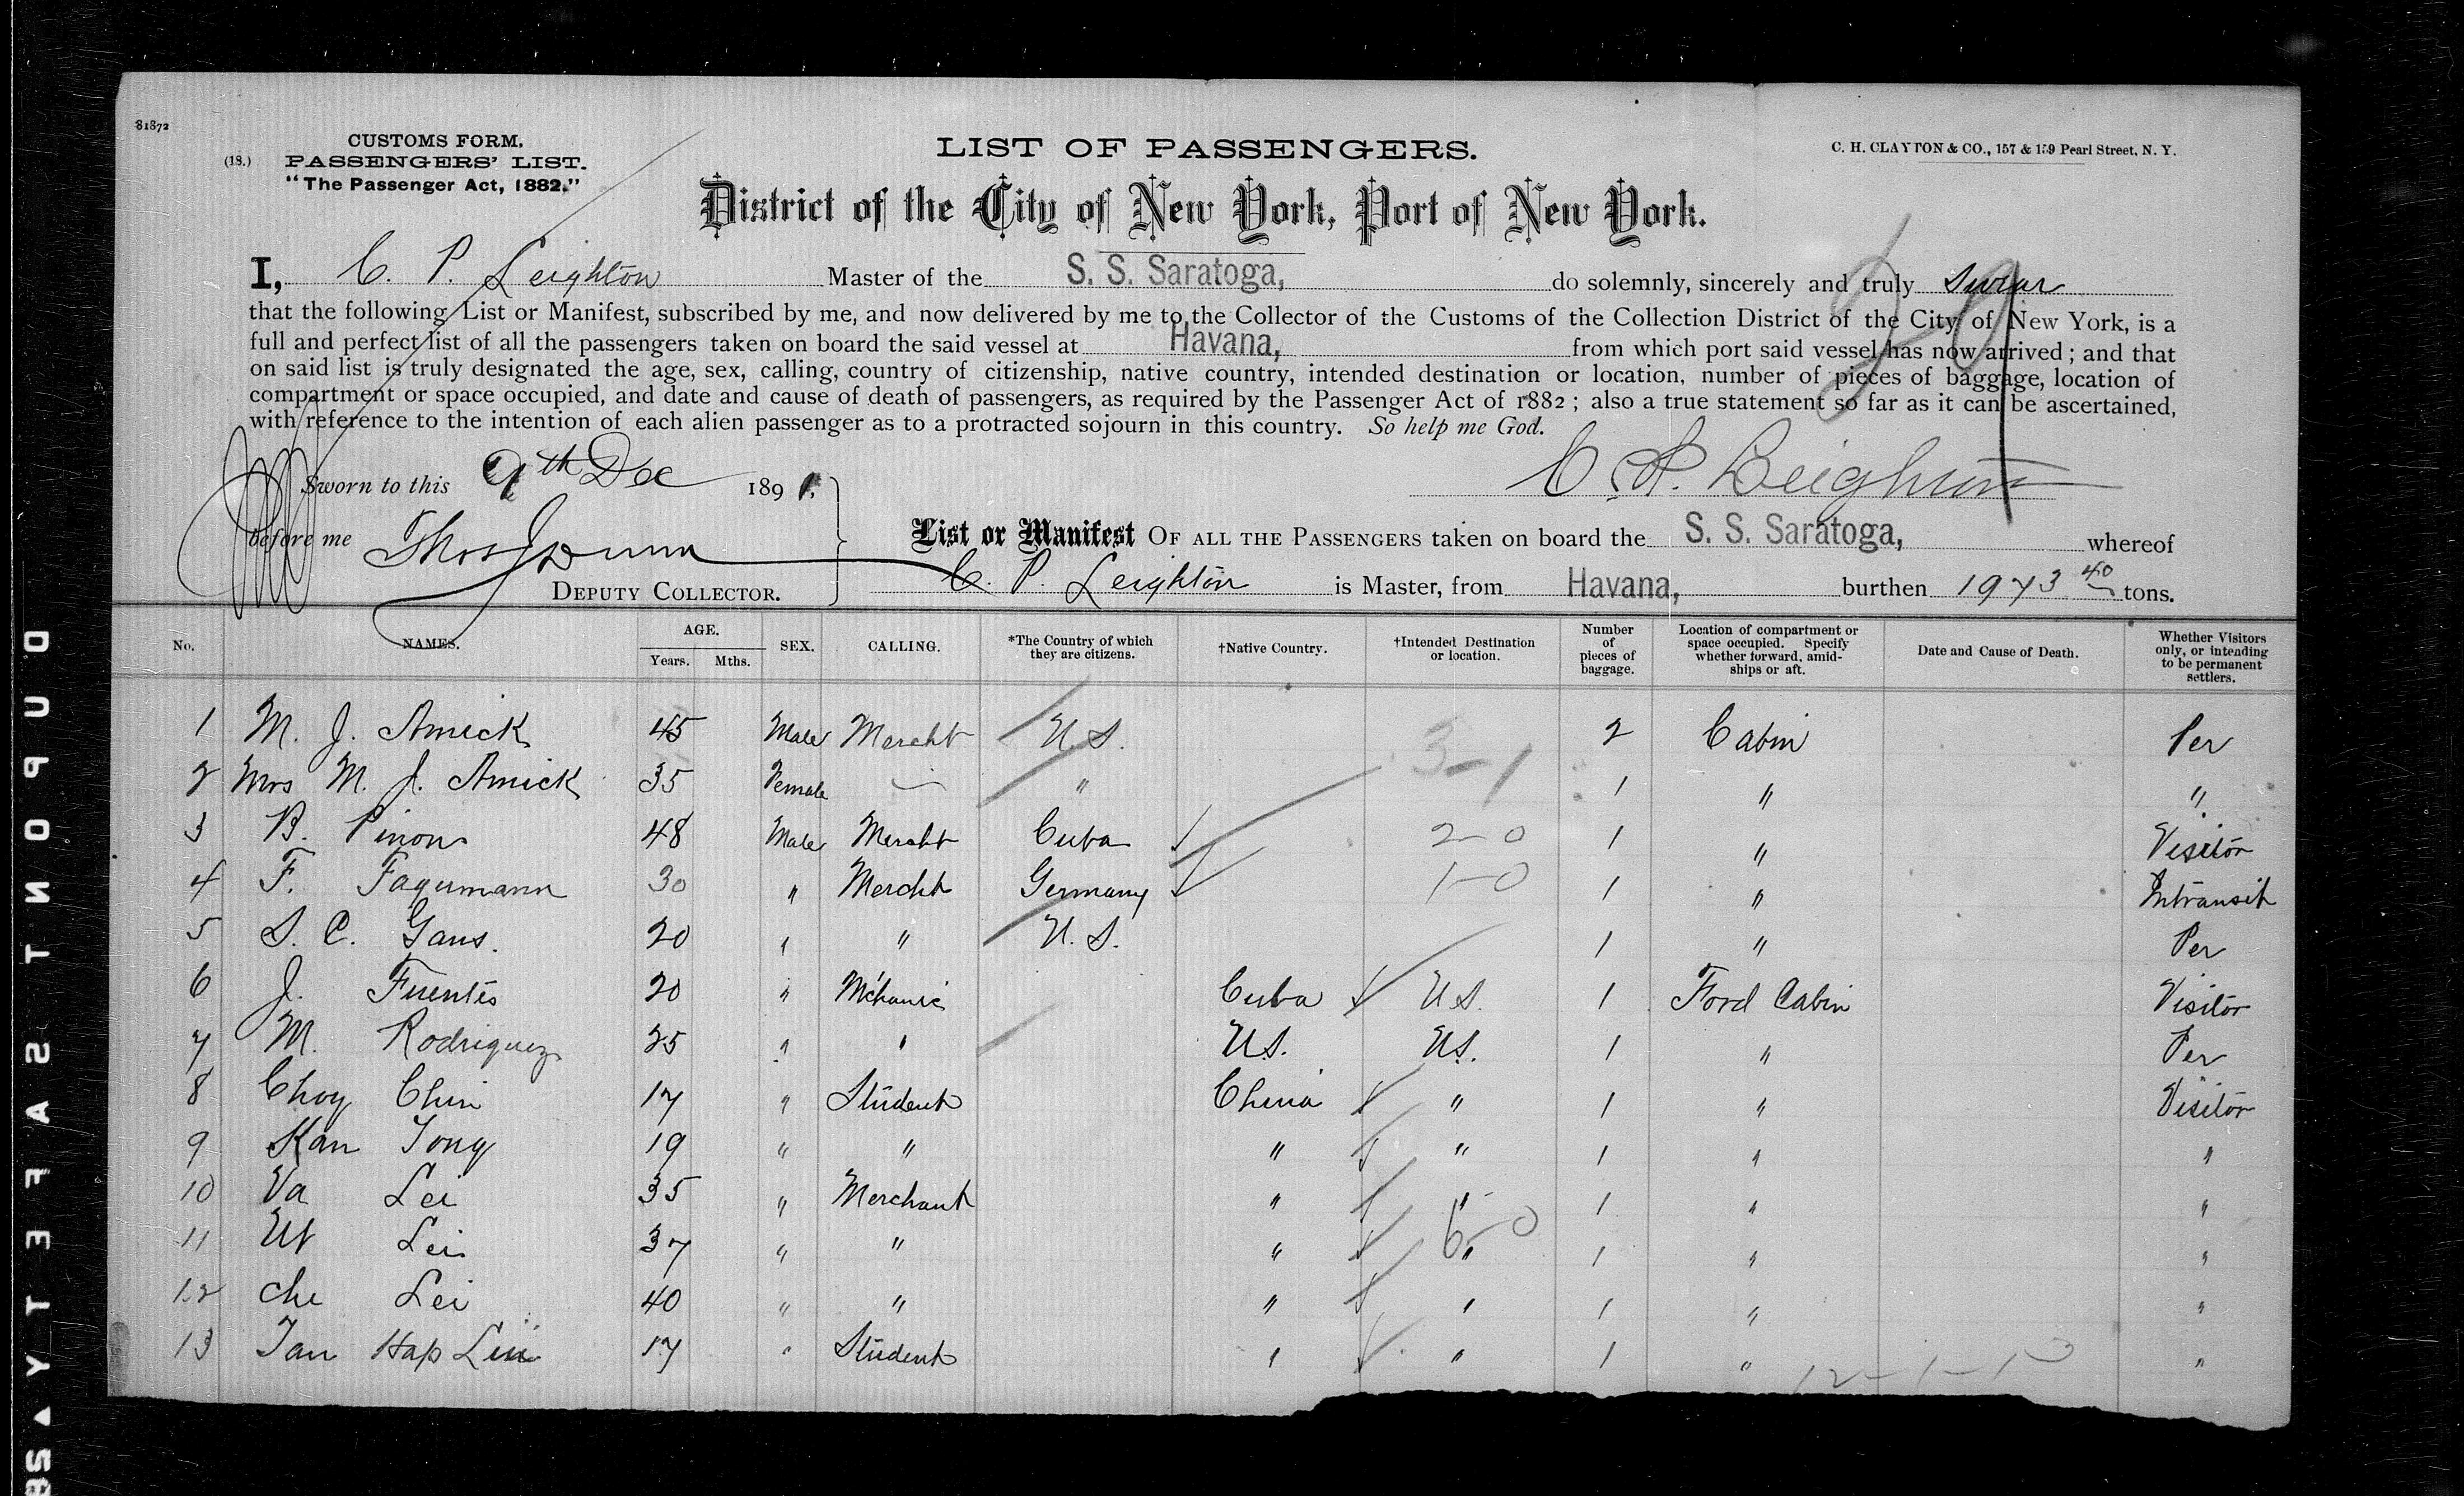 31872
CUSTOMS FORM.
(18.) PASSENGERS' LIST.
"The Passenger Act, 1882."
LIST OF PASSENGERS.
C. H. CLAYTON & CO., 157 & 159 Pearl Street, N. Y.
District of the City of New York, Port of New York.
I, C. P. Leighton Master of the S. S. Saratoga, do solemnly, sincerely and truly Swear
that the following List or Manifest, subscribed by me, and now delivered by me to the Collector of the Customs of the Collection District of the City of New York, is a
full and perfect list of all the passengers taken on board the said vessel at Havana, from which port said vessel has now arrived; and that
on said list is truly designated the age, sex, calling, country of citizenship, native country, intended destination or location, number of pieces of baggage, location of
compartment or space occupied, and date and cause of death of passengers, as required by the Passenger Act of 1882; also a true statement so far as it can be ascertained,
with reference to the intention of each alien passenger as to a protracted sojourn in this country. So help me God.
Sworn to this 9th Dec 1891. C. P. Leighton
before me Thos J Dunn
DEPUTY COLLECTOR.
List or Manifest OF ALL THE PASSENGERS taken on board the S. S. Saratoga, whereof
C. P. Leighton is Master, from Havana, burthen 1973 40 tons.
No. NAMES. AGE. Years. Mths. SEX. CALLING. *The Country of which they are citizens. †Native Country. †Intended Destination or location. Number of pieces of baggage. Location of compartment or space occupied. Specify whether forward, amidships or aft. Date and Cause of Death. Whether Visitors only, or intending to be permanent settlers.
1 M. J. Amick 45 Male Mercht U.S. 2 Cabin Per
2 Mrs M. J. Amick 35 Female — " 3-1 1 " "
3 B. Pinon 48 Male Mercht Cuba 2-0 1 " Visitor
4 F. Fagumann 30 " Mercht Germany 1-0 1 " Intransit
5 S. C. Gans. 20 " " U.S. 1 " Per
6 J. Fuentes 20 " Mchanic Cuba U.S. 1 Ford Cabin Visitor
7 M. Rodriguez 25 " " U.S. U.S. 1 " Per
8 Choy Chin 17 " Student China " 1 " Visitor
9 Kan Tong 19 " " " " 1 " "
10 Va Lei 35 " Merchant " " 1 " "
11 Ut Lei 37 " " " 6-0 " 1 " "
12 Che Lei 40 " " " " 1 " "
13 Tan Hap Lui 17 " Student " " 1 " "
12-1-10
DUPONT SAFETY